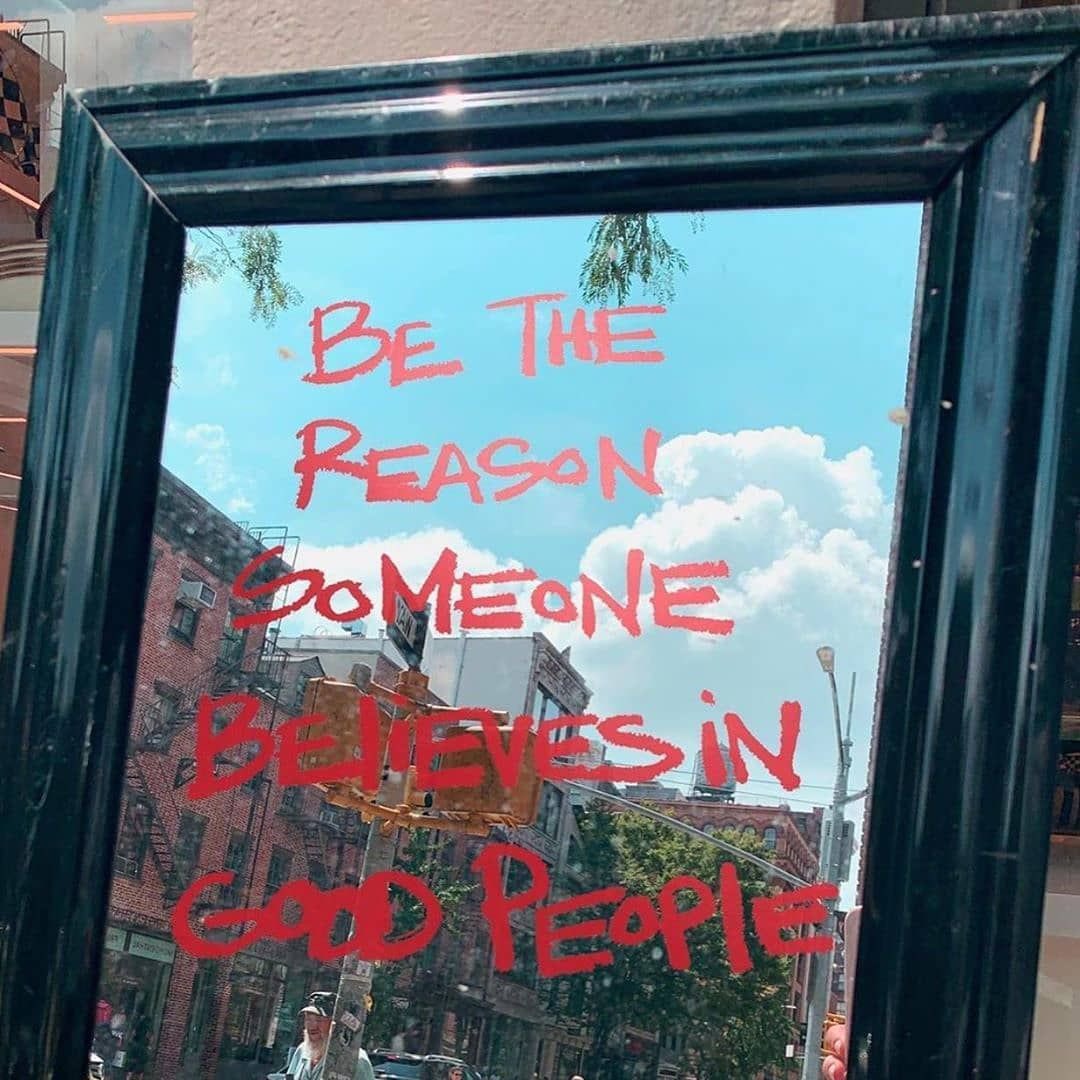 BE THE
REASON
SOMEONE
BELIEVES IN
GOOD PEOPLE